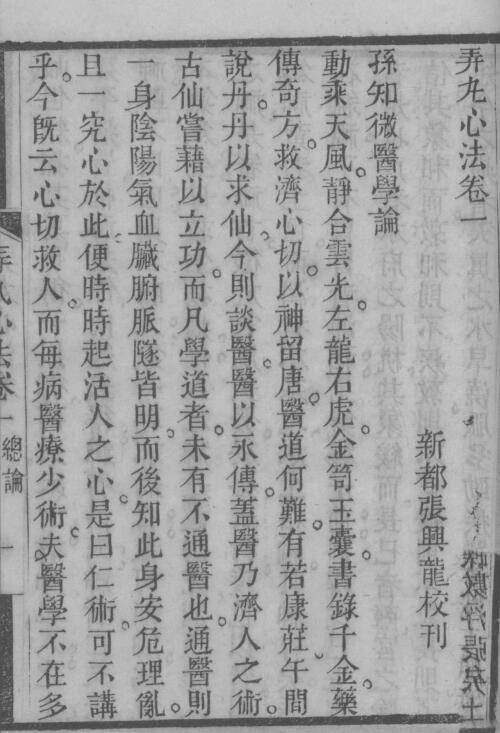 弄丸心法卷一
新都張興龍校刊
孫知微醫學論
動乘天風靜合雲光左龍右虎金笥玉囊書錄千金藥
傳奇方救濟心切以神留唐醫道何難有若康莊午間
說丹丹以求仙今則談醫醫以永傳蓋醫乃濟人之術
古仙嘗藉以立功而凡學道者未有不通醫也通醫則
一身陰陽氣血臟腑脈隧皆明而後知此身安危理亂
且一究心於此便時時起活人之心是曰仁術可不講
乎今旣云心切救人而每病醫療少術夫醫學不在多
弄丸心法卷一 總論 一